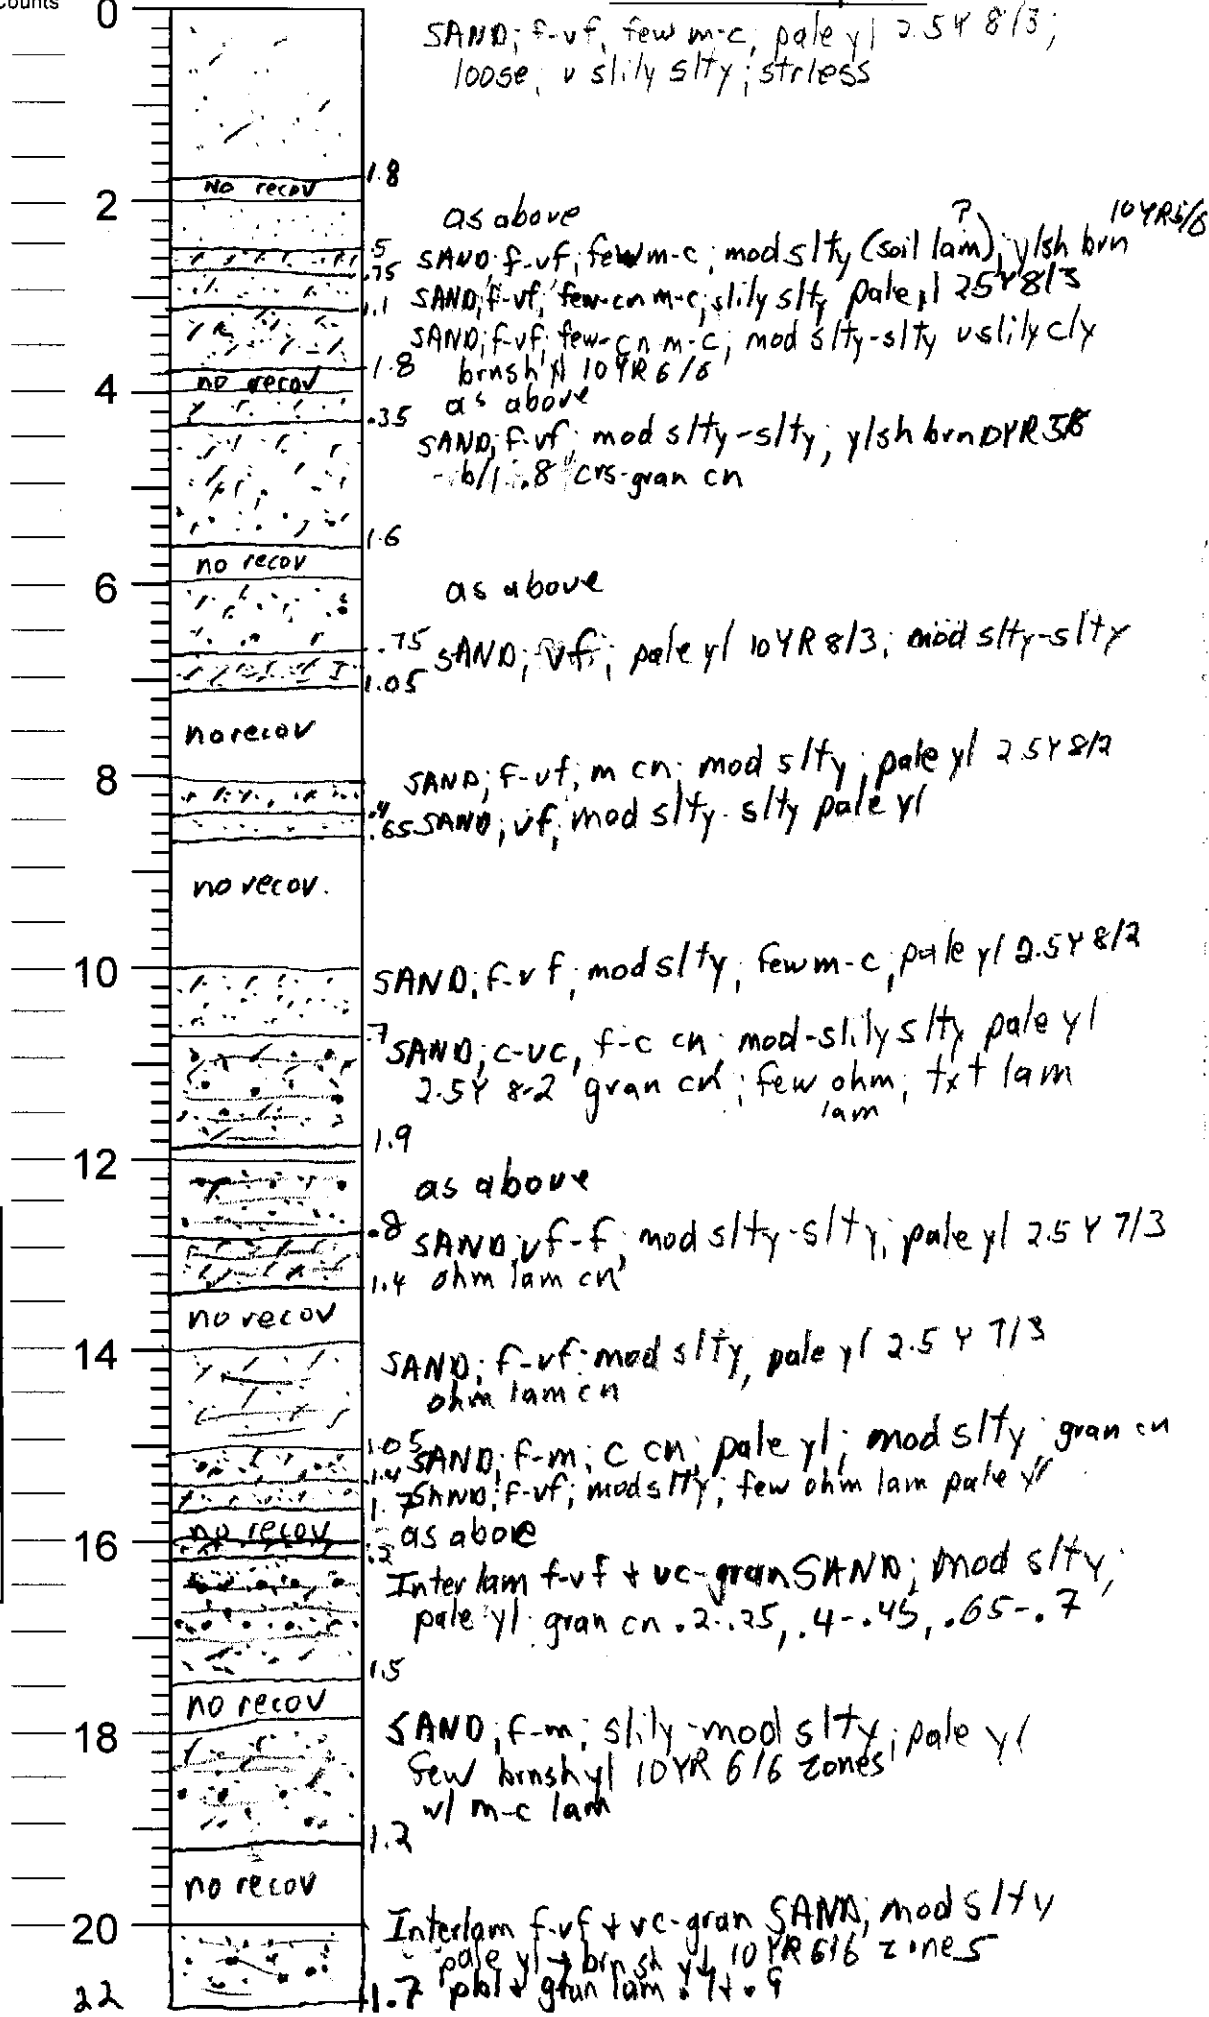 Counts
0
SAND; f-vf, few m-c, pale yl 2.5Y 8/3;
loose; v slily slty; strless
1.8
No recov
2
as above
?
10YR5/6
.5
SAND; f-vf; few m-c; mod slty (soil lam); ylsh brn
.75
SAND; f-vf; few-cn m-c; slily slty pale yl 2.5Y 8/3
1.1
SAND; f-vf; few-cn m-c; mod slty-slty v slily cly
1.8
brnsh yl 10YR 6/6
no recov
4
as above
.35
SAND; f-vf; mod slty-slty, ylsh brn
crs-gran cn
1.6
no recov
6
as above
.75
SAND; vf; pale yl 10YR 8/3; mod slty-slty
1.05
no recov
8
SAND; f-vf; m cn; mod slty; pale yl 2.5Y 8/2
.4
.65 SAND; vf; mod slty-slty pale yl
no recov.
10
SAND; f-vf; mod slty; few m-c; pale yl 2.5Y 8/2
.7
SAND; c-vc, f-c cn; mod-slily slty pale yl
2.5Y 8-2 gran cn; few ohm; txt lam
lam
1.9
12
as above
.8
SAND; vf-f; mod slty-slty; pale yl 2.5Y 7/3
1.4
ohm lam cn
no recov
14
SAND; f-vf; mod slty, pale yl 2.5Y 7/3
ohm lam cn
1.05
SAND; f-m; c cn; pale yl; mod slty; gran cn
1.4
SAND; f-vf; mod slty; few ohm lam pale yl
1.7
no recov
as above
16
.2
Inter lam f-vf + vc-gran SAND; mod slty;
pale yl gran cn .2-.25, .4-.45, .65-.7
1.5
no recov
18
SAND; f-m; slily-mod slty; pale yl
few brnsh yl 10YR 6/6 zones
w/ m-c lam
1.2
no recov
20
Interlam f-vf + vc-gran SAND; mod slty
pale yl → brnsh yl 10YR 6/6 zones
22
1.7 pbl + gran lam